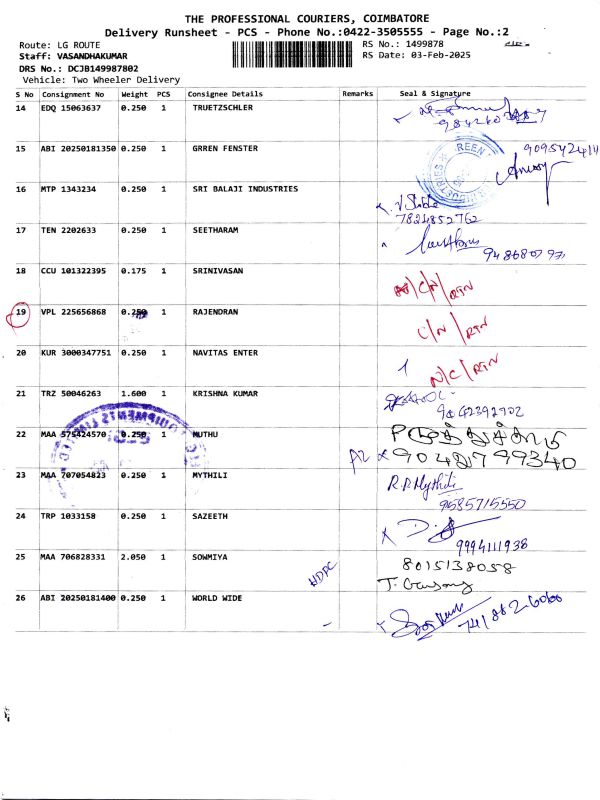 THE PROFESSIONAL COURIERS, COIMBATORE
Delivery Runsheet - PCS - Phone No.:0422-3505555 - Page No.:2
Route: LG ROUTE
RS No.: 1499878
Staff: VASANDHAKUMAR
RS Date: 03-Feb-2025
DRS No.: DCJB149987802
Vehicle: Two Wheeler Delivery
S No Consignment No Weight PCS Consignee Details Remarks Seal & Signature
14 EDQ 15063637 0.250 1 TRUETZSCHLER
15 ABI 20250181350 0.250 1 GRREN FENSTER
9095424114
16 MTP 1343234 0.250 1 SRI BALAJI INDUSTRIES
7824852762
17 TEN 2202633 0.250 1 SEETHARAM
18 CCU 101322395 0.175 1 SRINIVASAN N/C/N/RTN
19 VPL 225656868 0.250 1 RAJENDRAN C/N/RTN
20 KUR 3000347751 0.250 1 NAVITAS ENTER N/C/RTN
21 TRZ 50046263 1.600 1 KRISHNA KUMAR
9842392702
22 MAA 575424570 0.250 1 MUTHU
9042799340
23 MAA 707054823 0.250 1 MYTHILI R.P.Mythili
9585715550
24 TRP 1033158 0.250 1 SAZEETH
9994111938
25 MAA 706828331 2.050 1 SOWMIYA 8015138058
26 ABI 20250181400 0.250 1 WORLD WIDE